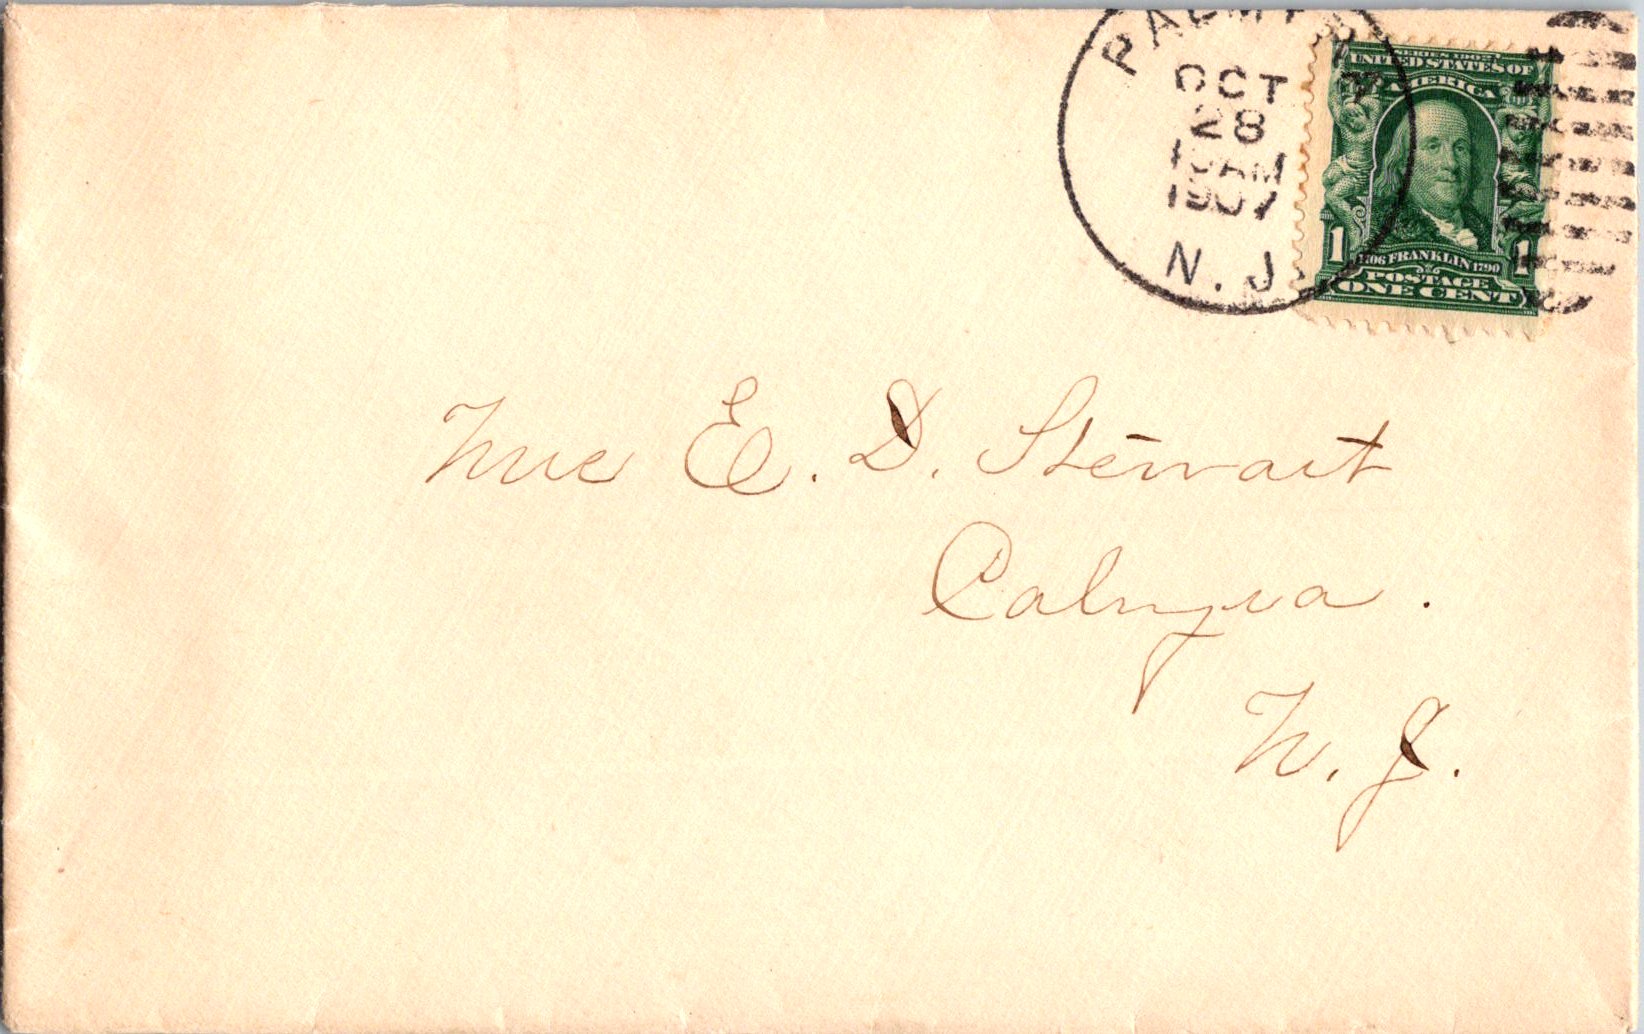 PALMYRA
OCT
28
10AM
1907
N.J.
SERIES 1902
UNITED STATES OF
AMERICA
1 1
1706 FRANKLIN 1790
POSTAGE
ONE CENT
Mrs E. D. Stewart
Palmyra.
N. J.